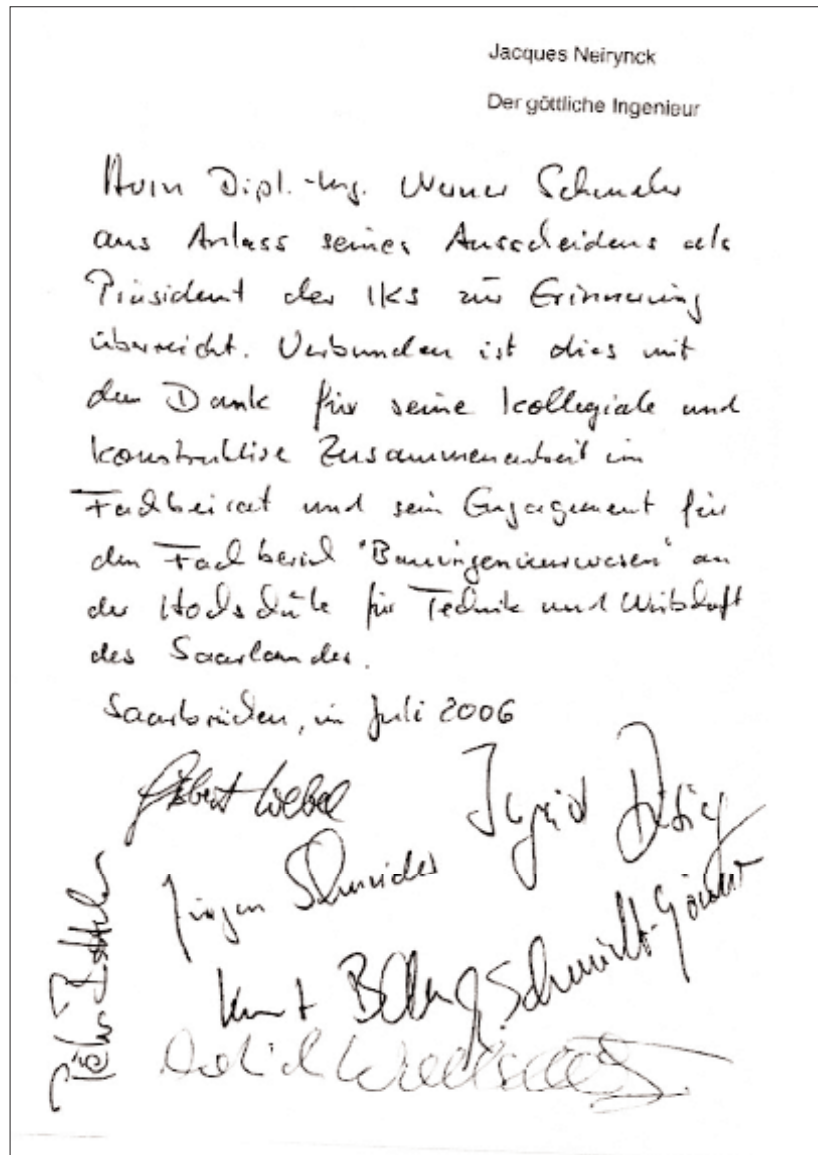 Jacques Neirynck
Der göttliche Ingenieur
Herrn Dipl.-Ing. Werner
aus Anlass seines Ausscheidens als
Präsident der IKS zur Erinnerung
überreicht. Verbunden ist dies mit
dem Dank für seine kollegiale und
konstruktive Zusammenarbeit im
Fachbeirat und sein Engagement für
den Fachbereich "Bauingenieurwesen" an
der Hochschule für Technik und Wirtschaft
des Saarlandes.
Saarbrücken, im Juli 2006
Weber
Ingrid
Jürgen Schneider
Kurt
Schmidt-